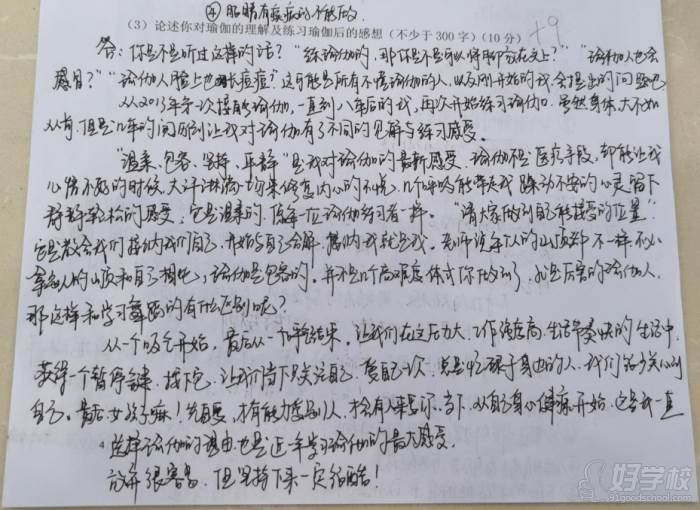 ④ 眼睛有疾病的不能做.
(3) 论述你对瑜伽的理解及练习瑜伽后的感想 (不少于 300 字) (10 分) +9
答: 你是不是听过这样的话? "练瑜伽的, 那你是不是可以将脚放在头上?" "瑜伽人也会
感冒?" "瑜伽人脸上也会长痘痘?" 这可能是所有不懂瑜伽的人, 以及刚开始的我, 会提出的问题吧
从2013年第一次接触瑜伽, 一直到八年后的我, 再次开始练习瑜伽. 虽然身体大不如
从前, 但是八年的间隔, 让我对瑜伽有了不同的见解与练习感受.
"温柔、包容、坚持、平静" 是我对瑜伽的最新感受. 瑜伽不是医疗手段, 却能让我
心情不好的时候, 大汗淋漓一切来修复内心的不悦. 几个呼吸能带走我躁动不安的心灵留下
静静轻松的感受. 它是温柔的, 像每一位瑜伽练习者一样. "请大家做到自己能接受的位置"
它是教会我们接纳我们自己, 开始与自己和解, 属于我就是我. 老师说每个人的山顶都不一样, 不必
拿别人的山顶和自己相比, 瑜伽是包容的. 并不是几个高难度体式你做到了, 就是厉害的瑜伽人,
那这样和学习舞蹈的有什么区别呢?
从一个吸气开始, 最后从一个呼结束. 让我们在这压力大, 工作强度高, 生活节奏快的生活中,
获得一个暂停键. 找下它, 让我们当下只关注自己, 爱自己一次. 总是忙碌于身边的人, 我们该多关心到
自己. 最后, 女孩子嘛! 先自爱, 才有能力爱别人, 才会有人来爱你. 当下, 从自己身心健康开始. 这是我一直
选择瑜伽的理由, 也是近一年学习瑜伽的最大感受.
放弃很容易, 但坚持下来一定很酷!
好学校
91goodschool.com